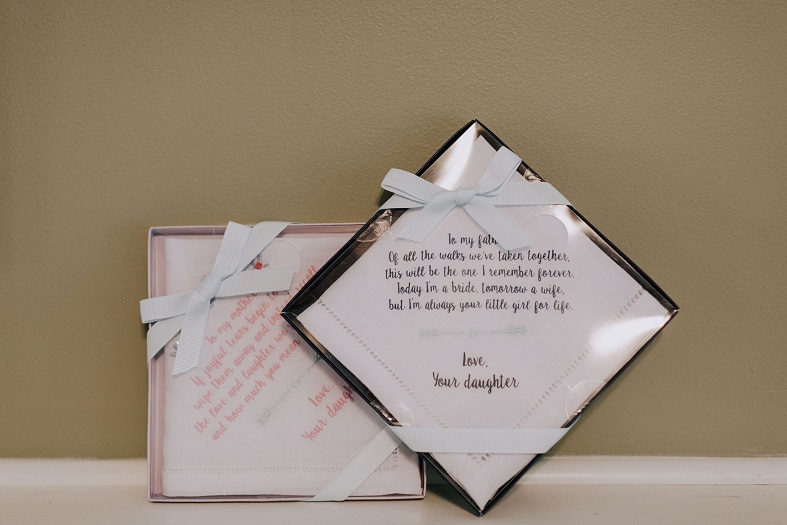 To my mothe
If joyful tears begin
wipe them away and
the love and laughter we
and how much you mean
Love,
Your daugh
To my fath
Of all the walks we've taken together,
this will be the one I remember forever.
Today I'm a bride, tomorrow a wife,
but I'm always your little girl for life.
Love,
Your daughter